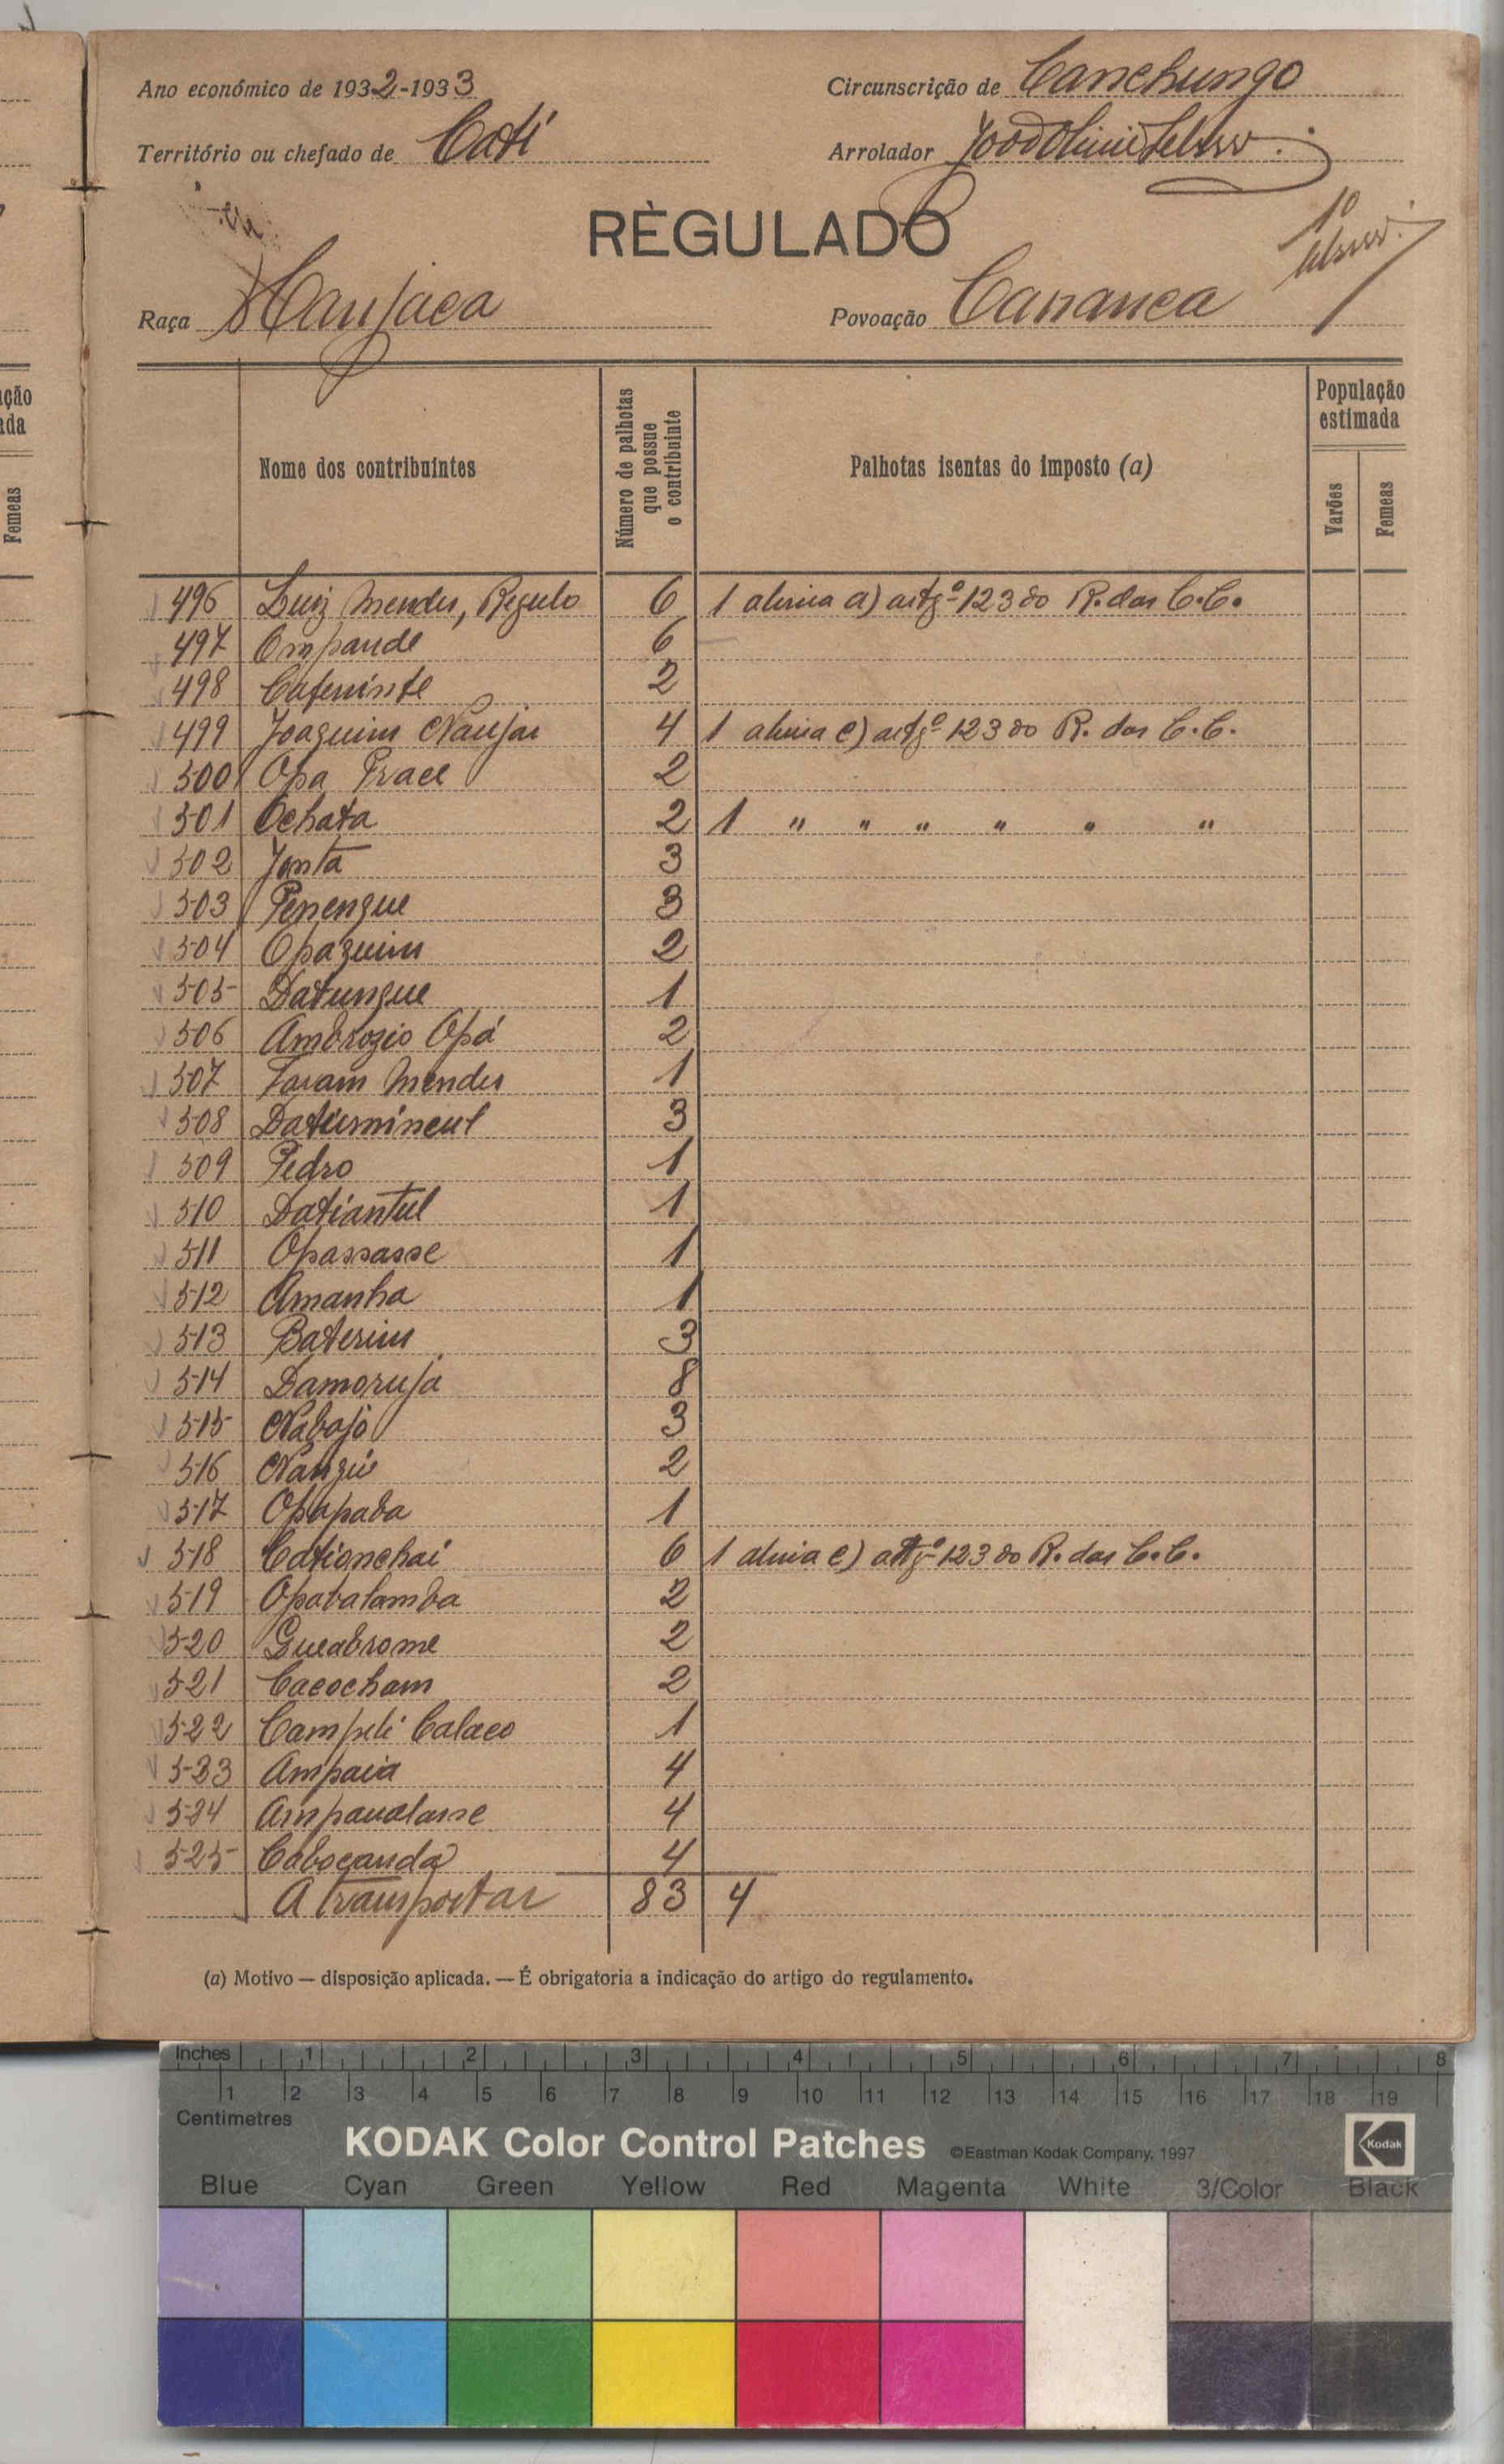 ção
ada
Femeas
Ano económico de 1932-1933
Circunscrição de Canchungo
Território ou chefado de Cati
Arrolador
RÈGULADO
1º
Raça Manjaca
Povoação Cananca
Nome dos contribuintes
Número de palhotas que possue o contribuinte
Palhotas isentas do imposto (a)
População estimada
Varões
Femeas
496 Luiz Mendes, Regulo 6 1 alinia a) artgº 123 do R. das C.C.
497 Ompande 6
498 Cafuinte 2
499 Joaquim Naujar 4 1 alinia c) artgº 123 do R. das C.C.
500 Opa Prace 2
501 Ochata 2 1 " " " " " "
502 Jontà 3
503 Penengue 3
504 Opaquim 2
505 Datungue 1
506 Ambrozio Opá 2
507 Laram Mendes 1
508 Datiumineul 3
509 Pedro 1
510 Datiantul 1
511 Opassasse 1
512 Amanha 1
513 Baterim 3
514 Damoruja 8
515 Nabajo 3
516 Nangui 2
517 Opapaba 1
518 Cationchai 6 1 alinia c) artgº 123 do R. das C.C.
519 Opabalamba 2
520 Gueabrome 2
521 Cacocham 2
522 Campili Calaco 1
533 Ampaia 4
524 Ampaualasse 4
525 Cabocanda 4
A transportar 83 4
(a) Motivo — disposição aplicada. — É obrigatoria a indicação do artigo do regulamento.
Inches 1 2 3 4 5 6 7 8
1 2 3 4 5 6 7 8 9 10 11 12 13 14 15 16 17 18 19
Centimetres
KODAK Color Control Patches ©Eastman Kodak Company, 1997 Kodak
Blue Cyan Green Yellow Red Magenta White 3/Color Black